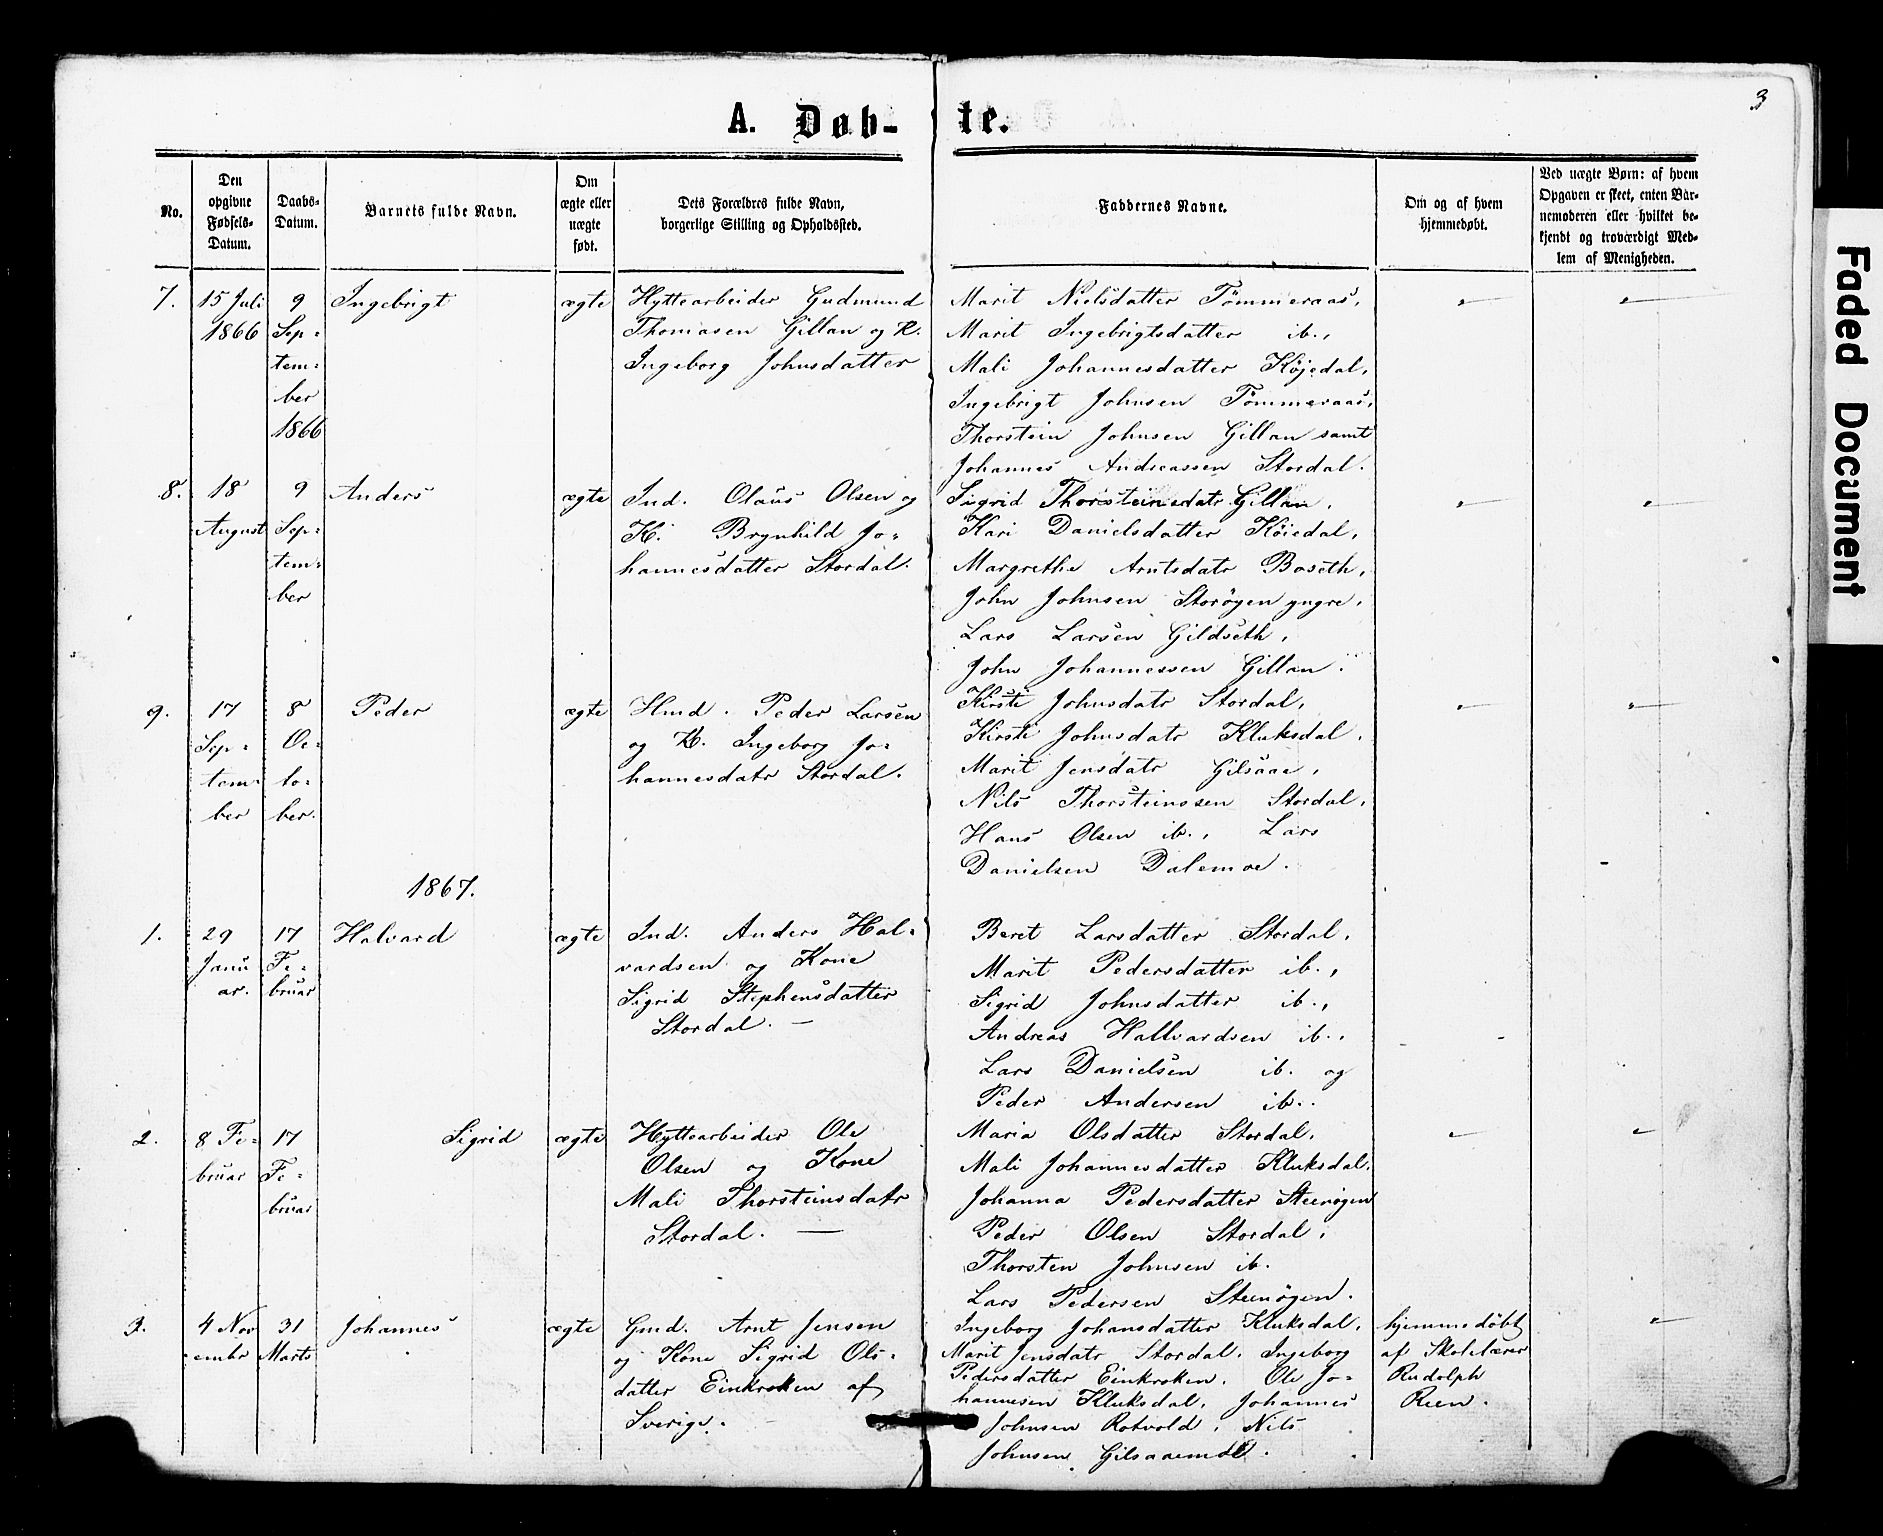 3
A. Døb-te.
No.
Den opgivne Fødsels-Datum.
Daabs-Datum.
Barnets fulde Navn.
Om ægte eller uægte født.
Dets Forældres fulde Navn, borgerlige Stilling og Opholdssted.
Faddernes Navne.
Om og af hvem hjemmedøbt.
Ved uægte Børn: af hvem Opgaven er skeet, enten Barnemoderen eller hvilket bekjendt og troværdigt Medlem af Menigheden.
7.
15 Juli
1866
9
Sep-
tem-
ber
1866
Ingebrigt
ægte
Hyttearbeider Gudmund
Thomasen Gillan og K.
Ingeborg Johnsdatter
Marit Nielsdatter Tömmeraas,
Marit Ingebrigtsdatter ib.,
Mali Johannesdatter Köjedal,
Ingebrigt Johnsen Tömmeraas,
Thorstein Johnsen Gillan samt
Johannes Andreassen Stordal.
8.
18
August
9
Sep-
tem-
ber
Anders
ægte
Ind. Olaus Olsen og
K. Brynhild Jo-
hannesdatter Stordal.
Sigrid Thorsteinsdatr Gillan,
Kari Danielsdatter Köiedal,
Margrethe Arntsdatr Boseth,
John Johnsen Storögen yngre,
Lars Larsen Gildseth,
John Johannessen Gillan.
9.
17
Sep-
tem-
ber
8
Oc-
to-
ber.
Peder
ægte
Hmd. Peder Larsen
og K. Ingeborg Jo-
hannesdatr Stordal.
Kirsti Johnsdatr Stordal,
Kirsti Johnsdatr Kluksdal,
Marit Jensdatr Gilsaae,
Nils Thorsteinssen Stordal,
Hans Olsen ib., Lars
Danielsen Dalemoe.
1867.
1.
29
Janu
ar.
17
Fe-
bruar
Halvard
ægte
Ind. Anders Hal-
vardsen og Kone
Sigrid Stephensdatter
Stordal. —
Beret Larsdatter Stordal,
Marit Pedersdatter ib.,
Sigrid Johnsdatter ib.,
Andreas Hallvardsen ib.,
Lars Danielsen ib. og
Peder Andersen ib..
2.
8 Fe-
bruar
17
Fe-
bruar
Sigrid
ægte
Hyttearbeider Ole
Olsen og Kone
Mali Thorsteinsdatr
Stordal. —
Maria Olsdatter Stordal,
Mali Johannesdatter Kluksdal,
Johanna Pedersdatter Steenögen
Peder Olsen Stordal,
Thorsten Johnsen ib.
Lars Pedersen Steenögen.
3.
4 Nov
embr
31
Marts
Johannes
ægte
Gmd. Arnt Jensen
og Kone Sigrid Ols-
datter Einkroken af
Sverige.
Ingeborg Johansdatter Kluksdal,
Marit Jensdatr Stordal, Ingeborg
Pedersdatter Einkroken, Ole Jo-
hannesen Kluksdal, Johannes
Johnsen Rotvold, Nils
Johnsen Gilsaaemdl.
hjemmedöbt
af Skolelærer
Rudolph
Reen.
Faded Document